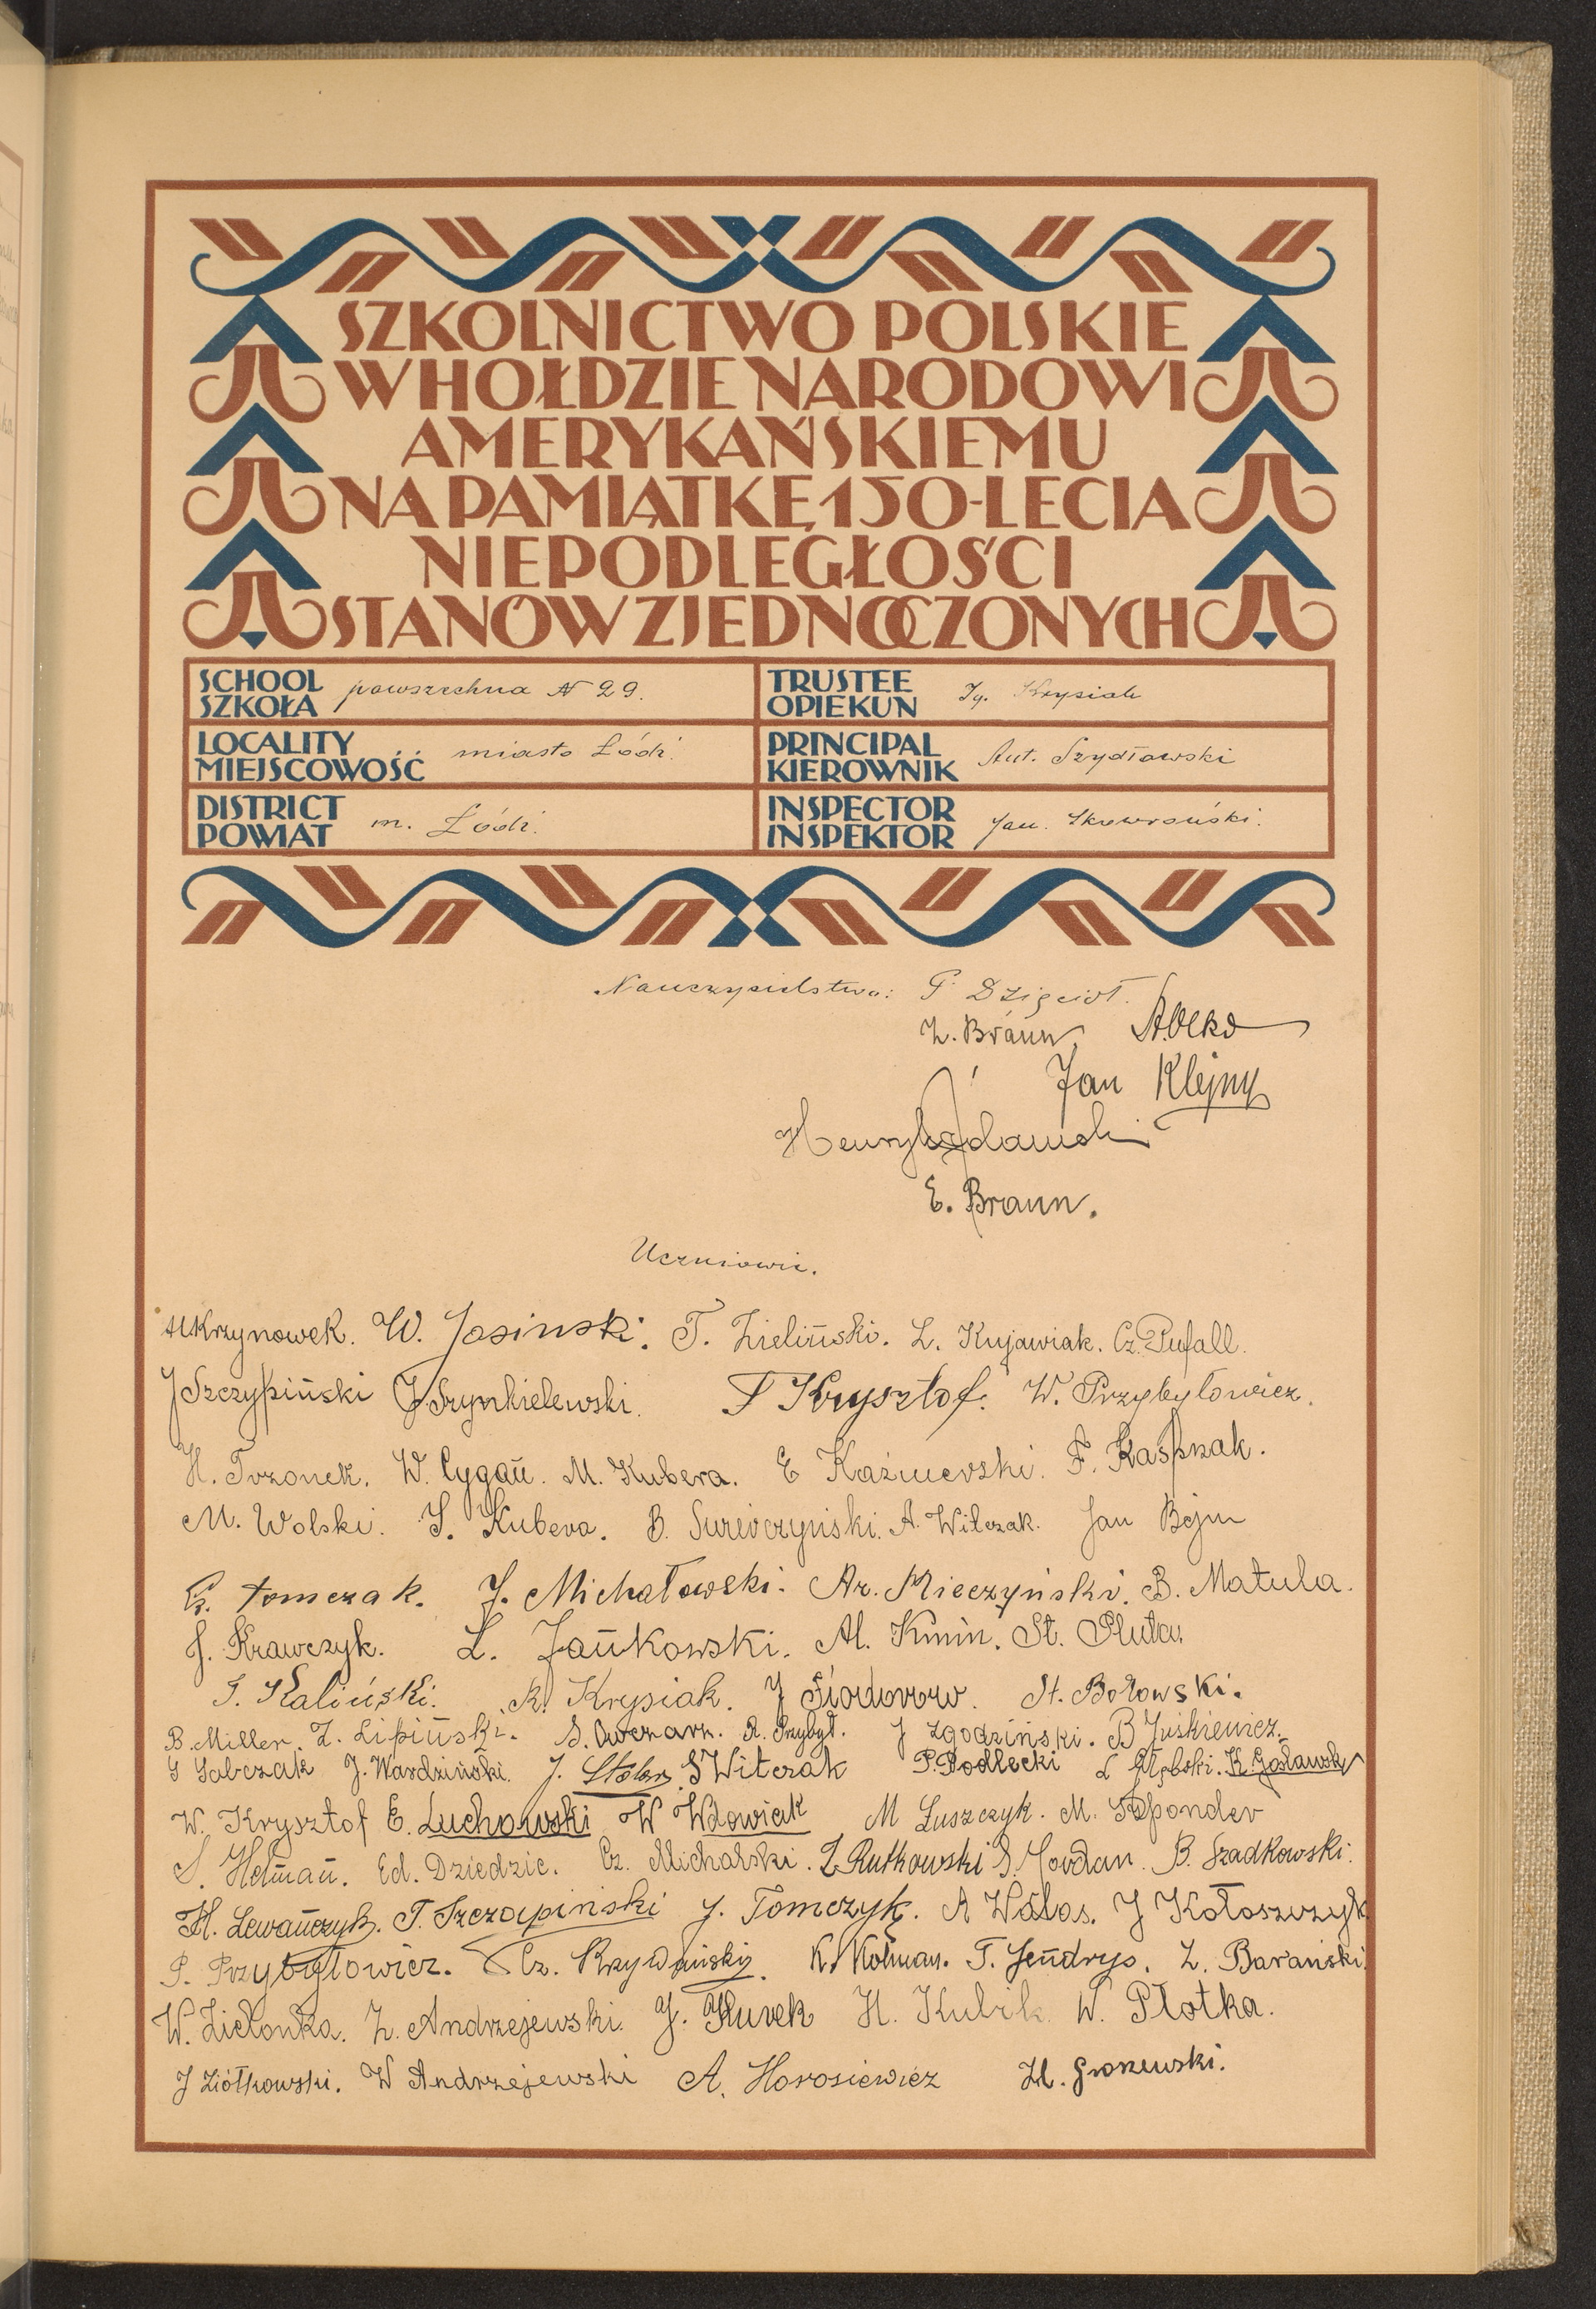 SZKOLNICTWO POLSKIE
W HOŁDZIE NARODOWI
AMERYKAŃSKIEMU
NA PAMIĄTKĘ 150-LECIA
NIEPODLEGŁOŚCI
STANÓW ZJEDNOCZONYCH
SCHOOL SZKOŁA powszechna N 29.
TRUSTEE OPIEKUN Ig. Krysiak
LOCALITY MIEJSCOWOŚĆ miasto Łódź.
PRINCIPAL KIEROWNIK Ant. Szydłowski
DISTRICT POWIAT m. Łódź.
INSPECTOR INSPEKTOR Jan. Skowroński.
Nauczycielstwo: G. Dzięcioł.
Z. Braun
Jan Klejny
Henryk Adamski
E. Braun.
Uczniowie.
Krzynowek. W. Jasinski. T. Zieliński. L. Kujawiak. Cz. Pufall.
J Szczypiński J. Szynkielewski. F Krysztof. W. Przybyłowicz.
H. Trzonek. W. Cygań. M. Kubera. E Kaźmierski. F. Kasprzak.
M. Wolski. S. Kubera. B. A. Witczak. Jan Bejm
Cz. Tomczak. J. Michałowski. Ar. Mieczyński. B. Matula.
J. Krawczyk. L. Jańkowski. Al. Kmin. St. Pluta.
J. Kaliński. R. Krysiak. J Fiodorow. St. Borowski.
B. Miller. Z. Lipiński. S. Owczarz. R. Przybył. J Zgodziński. B Juśkiewicz.
G Sobczak J. Wardziński. J. Stolarz S Witczak P. Podlecki L Głębski. K. Gosławski
W. Krysztof E. Luchowski W Wdowiak M Łuszczyk. M. Rzponder
S. Helman. Ed. Dziedzic. Cz. Michalski. Z Rutkowski S. Jordan. B. Szadkowski.
H. Lewańczyk. T. Szczapiński J. Tomczyk. A Walas. J Kołoszczyk
P. Przybyłowicz. Cz. Krzywański. K. Kolman. T. Jendryo. Z. Barański.
W. Zielonka. Z. Andrzejewski. J. Kurek H. Kubik W. Płotka.
J Ziółkowski. W Andrzejewski A. Horosiewicz Zd. Groszewski.